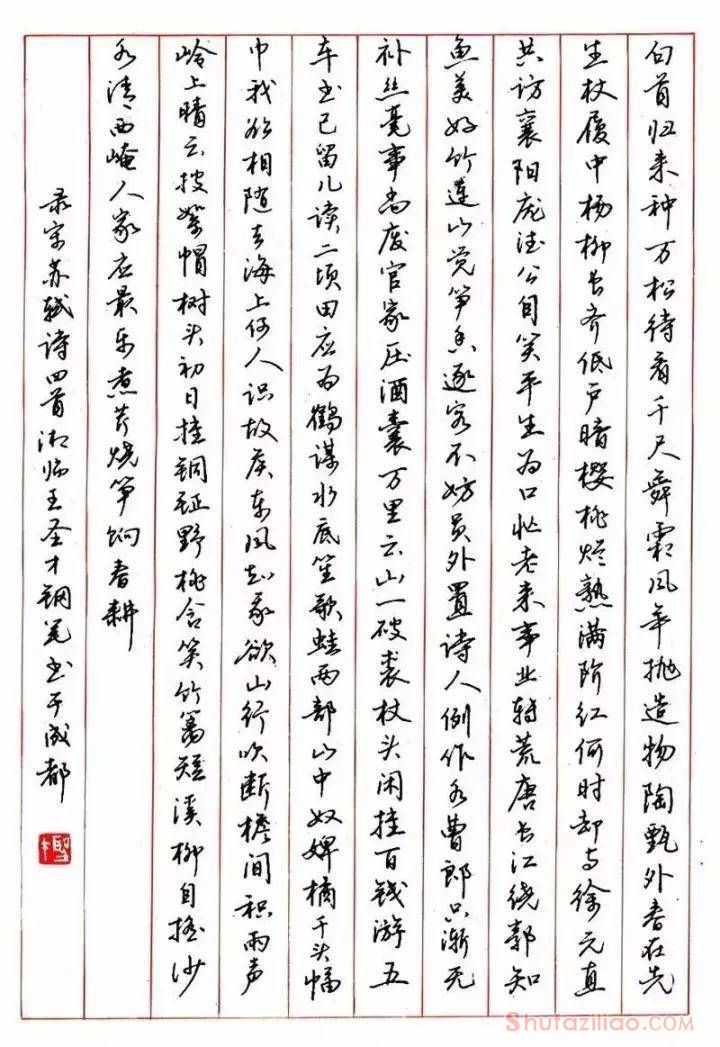 白首归来种万松待看千尺舞霜风年抛造物陶甄外春在先
生杖履中杨柳长齐低户暗樱桃烂熟满阶红何时却与徐元直
共访襄阳庞德公自笑平生为口忙老来事业转荒唐长江绕郭知
鱼美好竹连山觉笋香逐客不妨员外置诗人例作水曹郎只惭无
补丝毫事尚废官家压酒囊万里云山一破裘杖头闲挂百钱游五
车书已留儿读二顷田应为鹤谋水底笙歌蛙两部山中奴婢橘千头幅
巾我欲相随去海上何人识故侯东风知我欲山行吹断檐间积雨声
岭上晴云披絮帽树头初日挂铜钲野桃含笑竹篱短溪柳自摇沙
水清西崦人家应最乐煮芹烧笋饷春耕
录宋苏轼诗四首湘王圣才钢笔书于成都
Shufaziliao.com